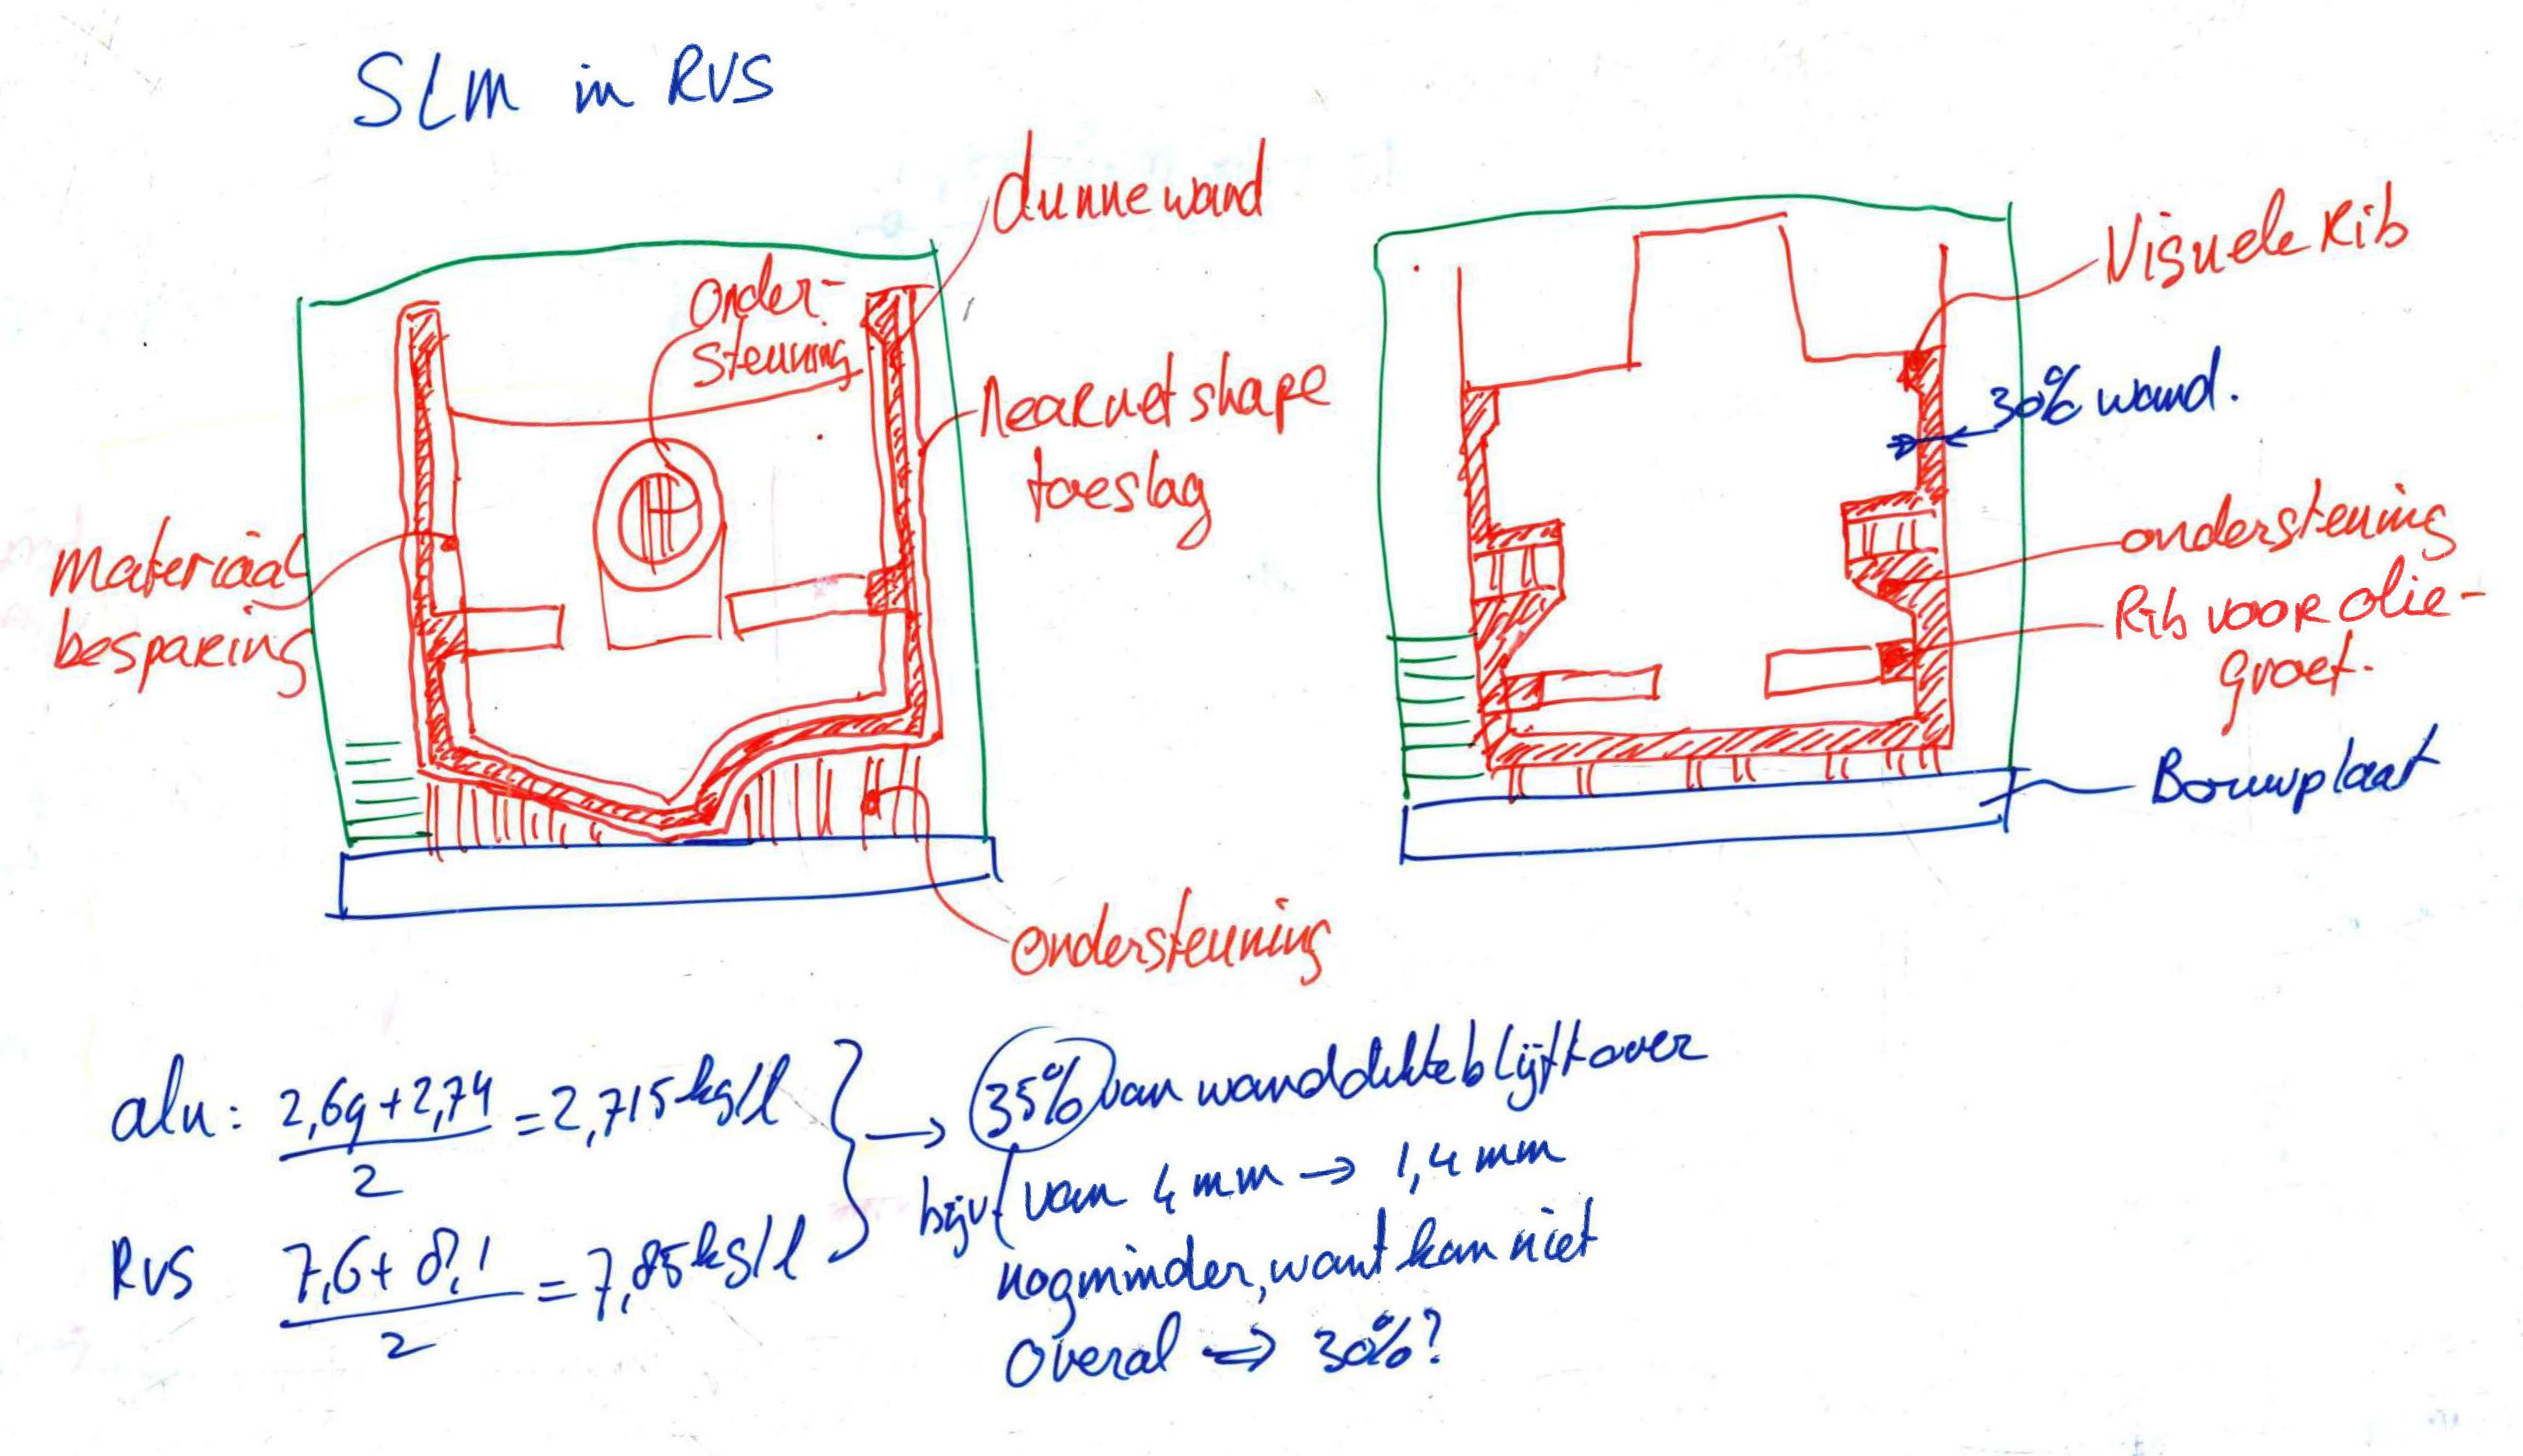 SLM in RVS
dunne wand
Onder-
steuning
Nearnet shape
toeslag
Materiaal
besparing
ondersteuning
Visuele Rib
30% wand.
ondersteuning
Rib voor olie-
groef.
Bouwplaat
alu: 2,69+2,74 = 2,715 kg/l
2
RVS 7,6+8,1 = 7,85 kg/l
2
35% van wanddikte blijft over
bijv van 4 mm → 1,4 mm
nog minder, want kan niet
Overal → 30%?